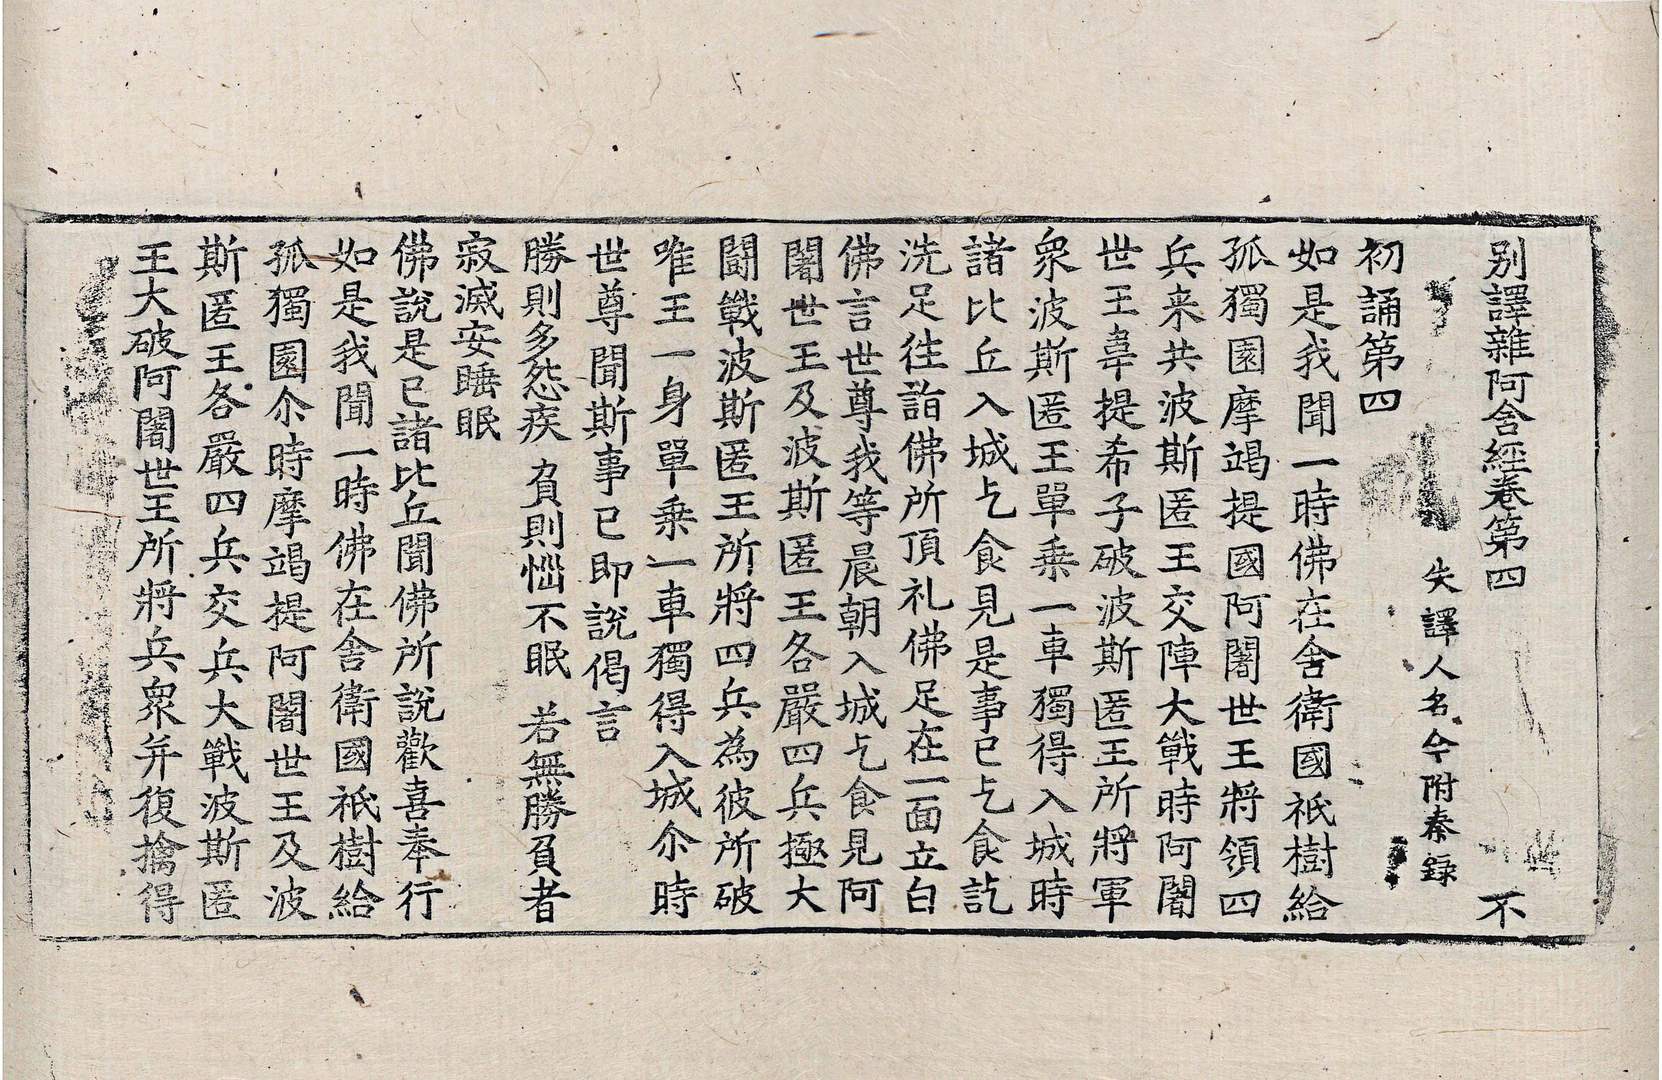 别譯雜阿含經卷第四 不
失譯人名今附秦録
初誦第四
如是我聞一時佛在舎衛國祇樹給
孤獨園摩竭提國阿闍世王將領四
兵来共波斯匿王交陣大戰時阿闍
世王韋提希子破波斯匿王所將軍
衆波斯匿王單乗一車獨得入城時
諸比丘入城乞食見是事已乞食訖
洗足往詣佛所頂礼佛足在一面立白
佛言世尊我等晨朝入城乞食見阿
闍世王及波斯匿王各嚴四兵極大
鬪戰波斯匿王所將四兵為彼所破
唯王一身單乗一車獨得入城尒時
世尊聞斯事已即說偈言
勝則多怨疾 負則惱不眠 若無勝負者
寂滅安睡眠
佛說是已諸比丘聞佛所說歡喜奉行
如是我聞一時佛在舎衛國祇樹給
孤獨園尒時摩竭提阿闍世王及波
斯匿王各嚴四兵交兵大戰波斯匿
王大破阿闍世王所將兵衆并復擒得